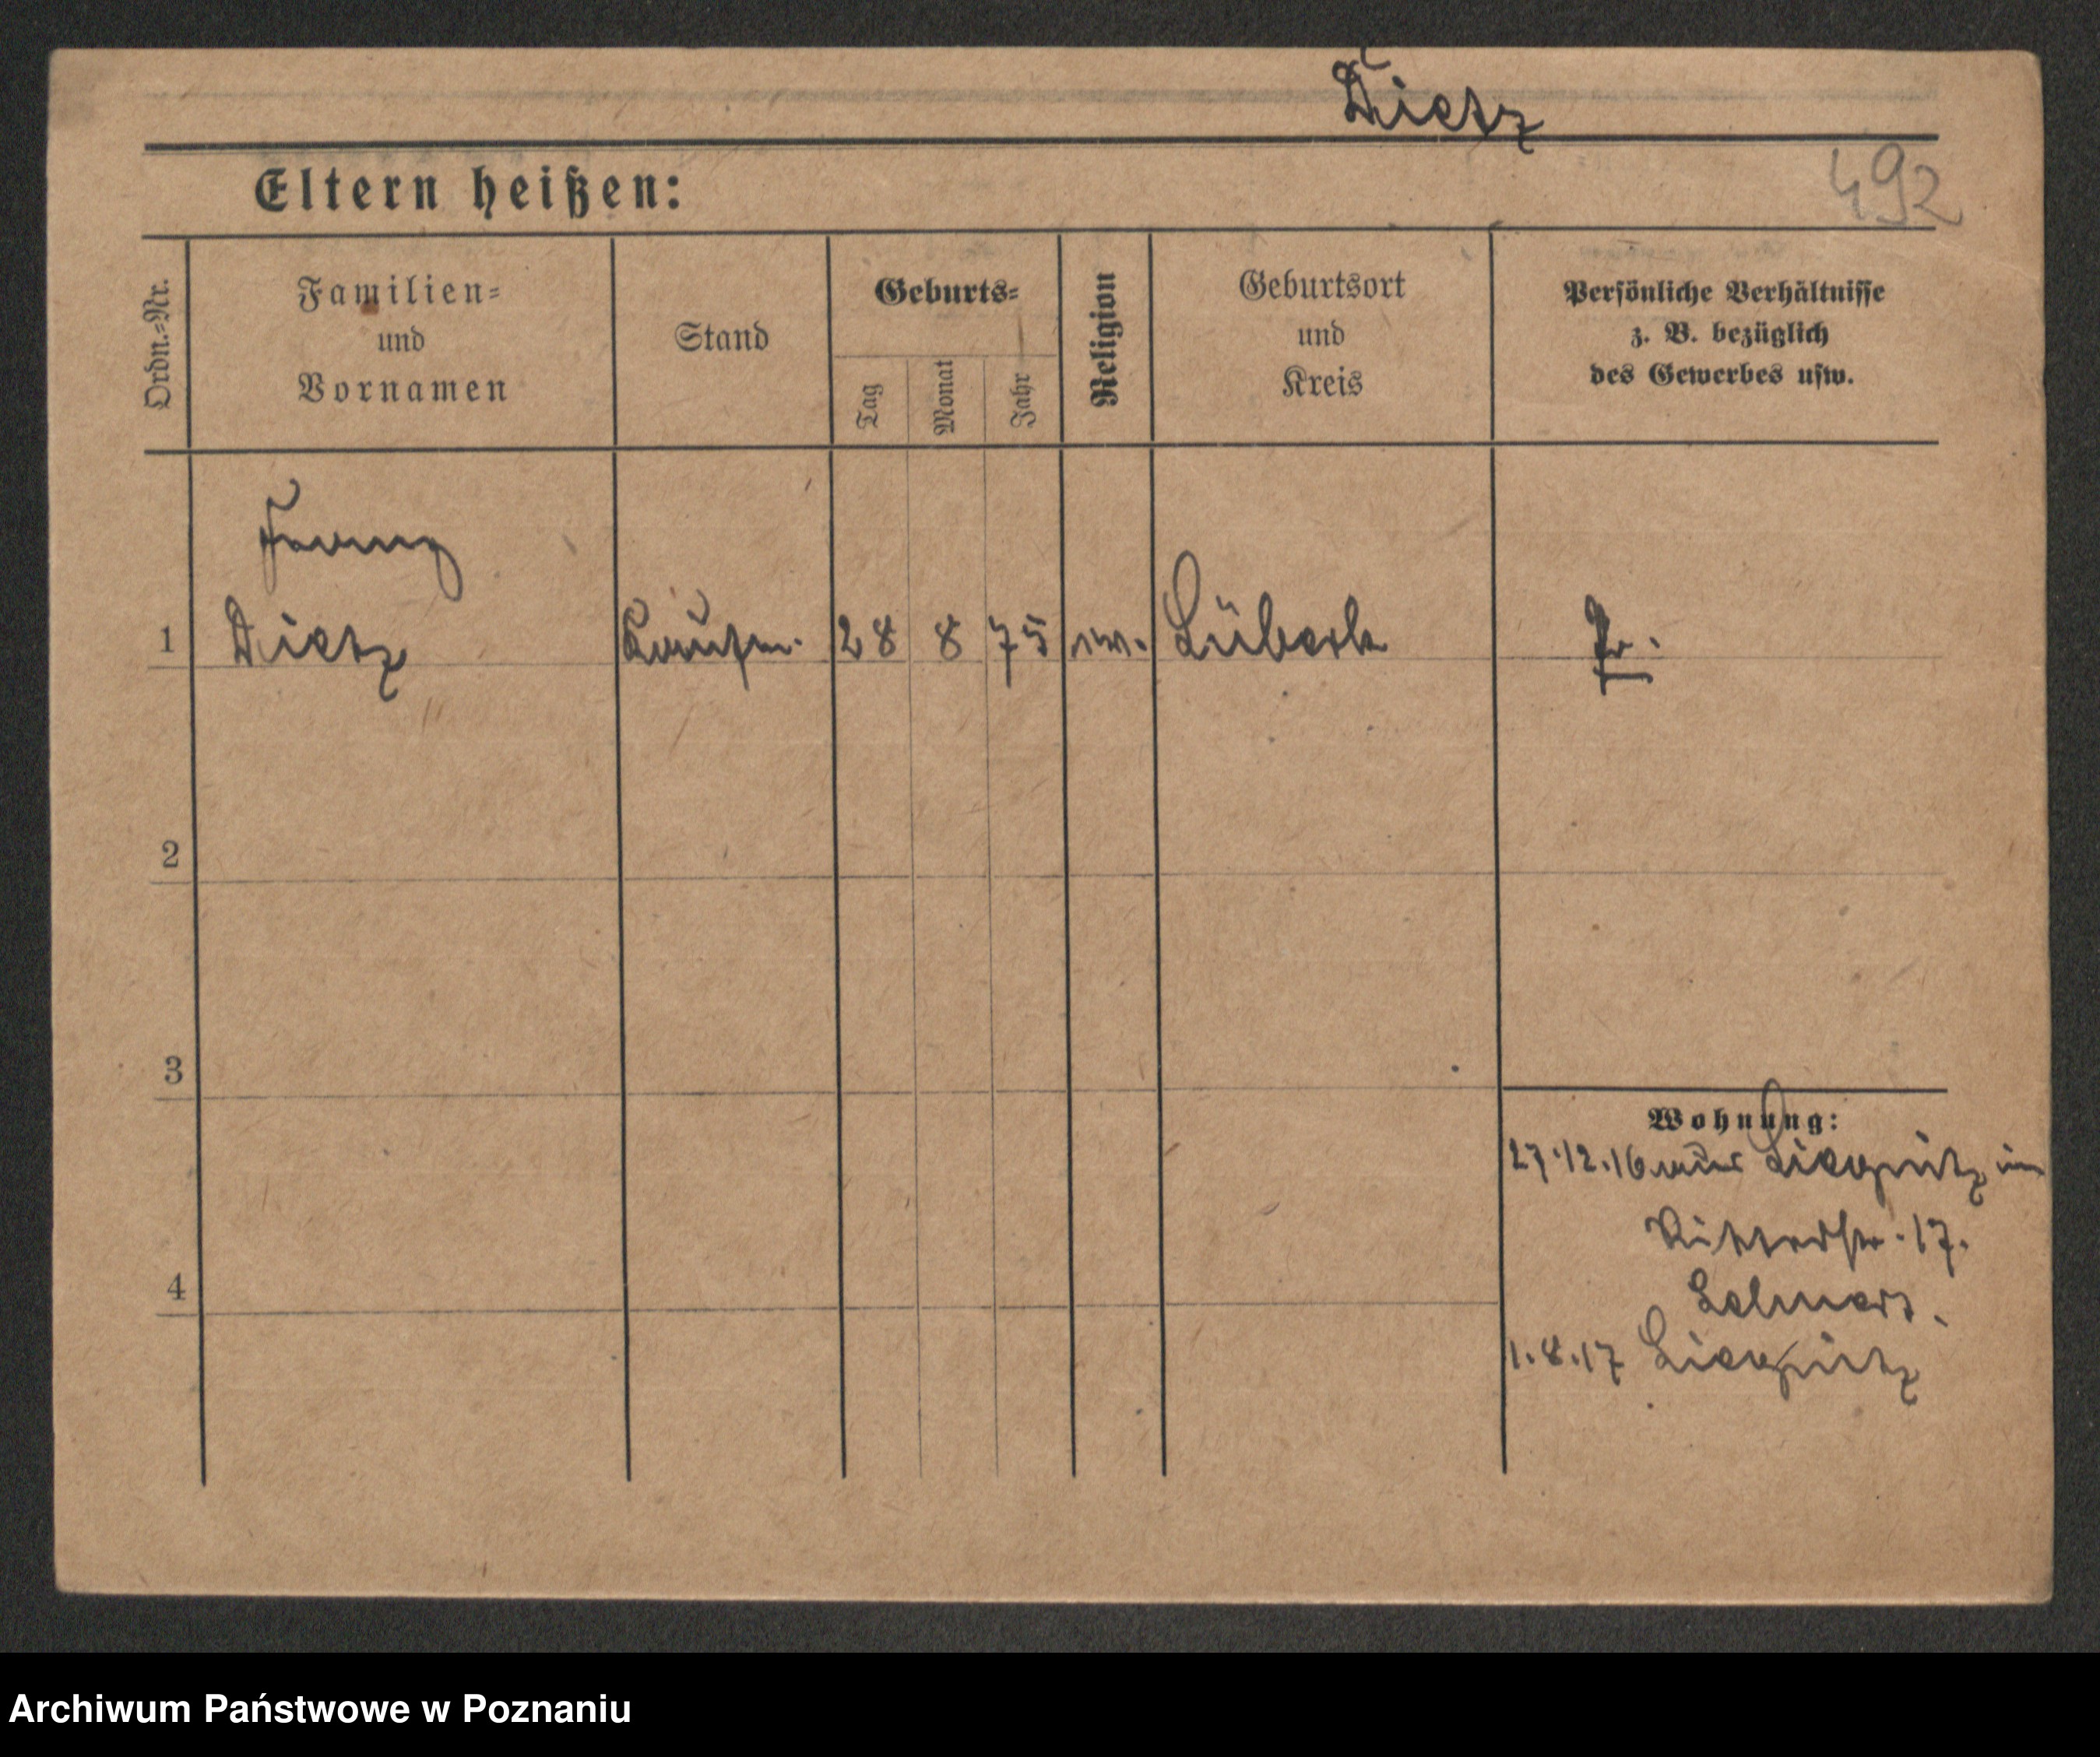 Dietz
Eltern heißen:
492
Ordn.-Nr.
Familien-
und
Vornamen
Stand
Geburts-
Tag
Monat
Jahr
Religion
Geburtsort
und
Kreis
Persönliche Verhältnisse
z. B. bezüglich
des Gewerbes usw.
Franz
1 Dietz Kaufm. 28 8 75 Lübeck Pr.
2
3
4
Wohnung:
27.12.16 aus Liegnitz in
Ritterstr. 17.
1.8.17 Liegnitz
Archiwum Państwowe w Poznaniu